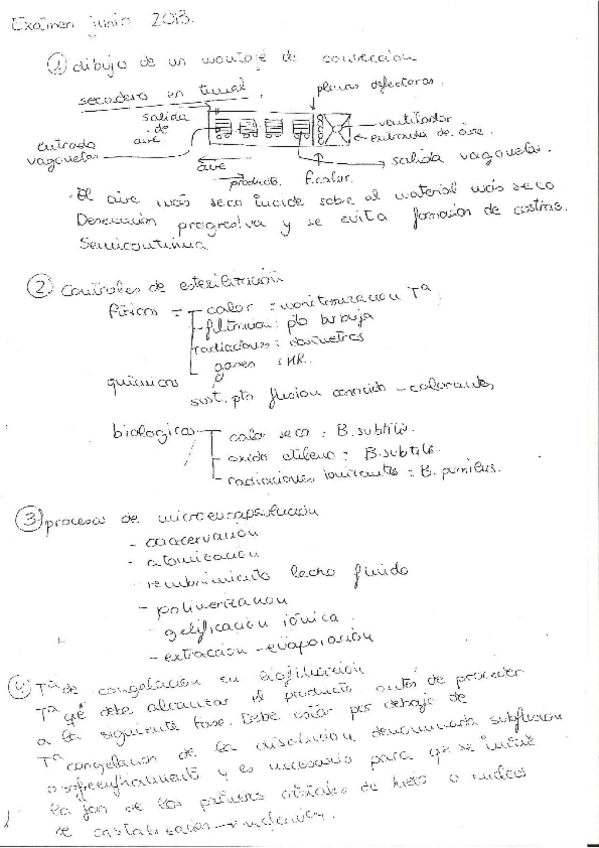 Exámen junio 2013.
① dibujo de un montaje de convección
secadero en tunel.
placas deflectoras.
salida
de
aire
ventilador
entrada de aire.
entrada
vagonetas
salida vagonetas.
aire
producto.
F.calor.
· El aire más seco incide sobre el material más seco
Desecación progresiva y se evita formación de costras.
Semicontinua
② Controles de esterilización
físicos = calor : monitorización Tª
filtración : pto burbuja
radiaciones : dosímetros
gases : HR.
químicos
sust. pto fusion conocido - colorantes
biologicos calor seco : B. subtilis.
oxido etileno : B. subtilis.
radiaciones ionizantes : B. pumilus.
③ procesos de microencapsulación
- coacervación
- atomización
- recubrimiento lecho fluido
- polimerizacion
- gelificación iónica
- extraccion - evaporación
④ Tª de congelación en liofilización
Tª qué debe alcanzar el producto antes de proceder
a la siguiente fase. Debe estar por debajo de
Tª congelacion de la disolución denominada subfusion
o sobreenfriamiento y es necesario para que se inicie
la for de los primeros cristales de hielo o nucleos
de cristalización